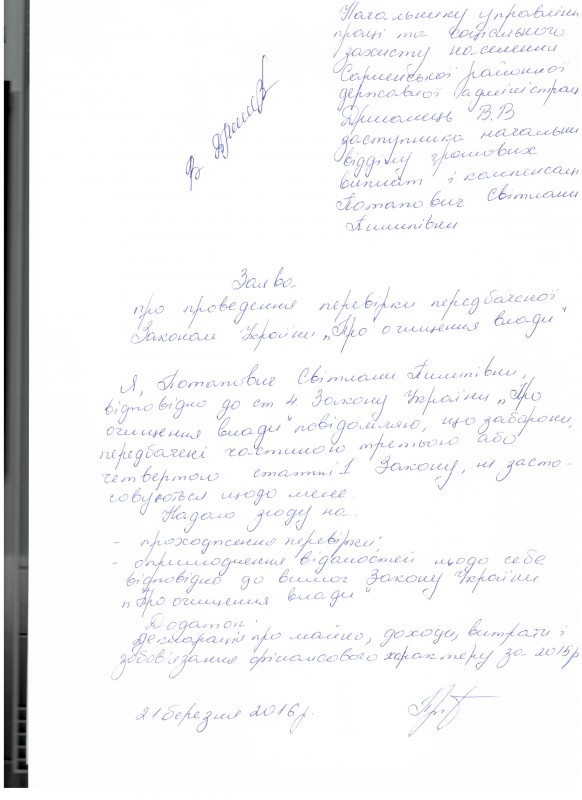 Начальнику управлінн
праці та соціального
захисту населення
Сарненської районної
державної адміністрац
В.В
заступника начальни
відділу грошових
виплат і компенсац
Потапович Світлани
Пилипівни
Заява
про проведення перевірки передбаченої
Законом України „Про очищення влади"
Я, Потапович Світлани Пилипівни,
відповідно до ст 4. Закону України „Про
очищення влади" повідомляю, що заборони,
передбачені частиною третьою або
четвертою статті 1 Закону, не засто-
совуються щодо мене.
Надаю згоду на:
- проходження перевірки;
- оприлюднення відомостей щодо себе
відповідно до вимог Закону України
„Про очищення влади"
Додаток:
Декларація про майно, доходи, витрати і
зобов'язання фінансового характеру за 2015р
21 березня 2016 р.